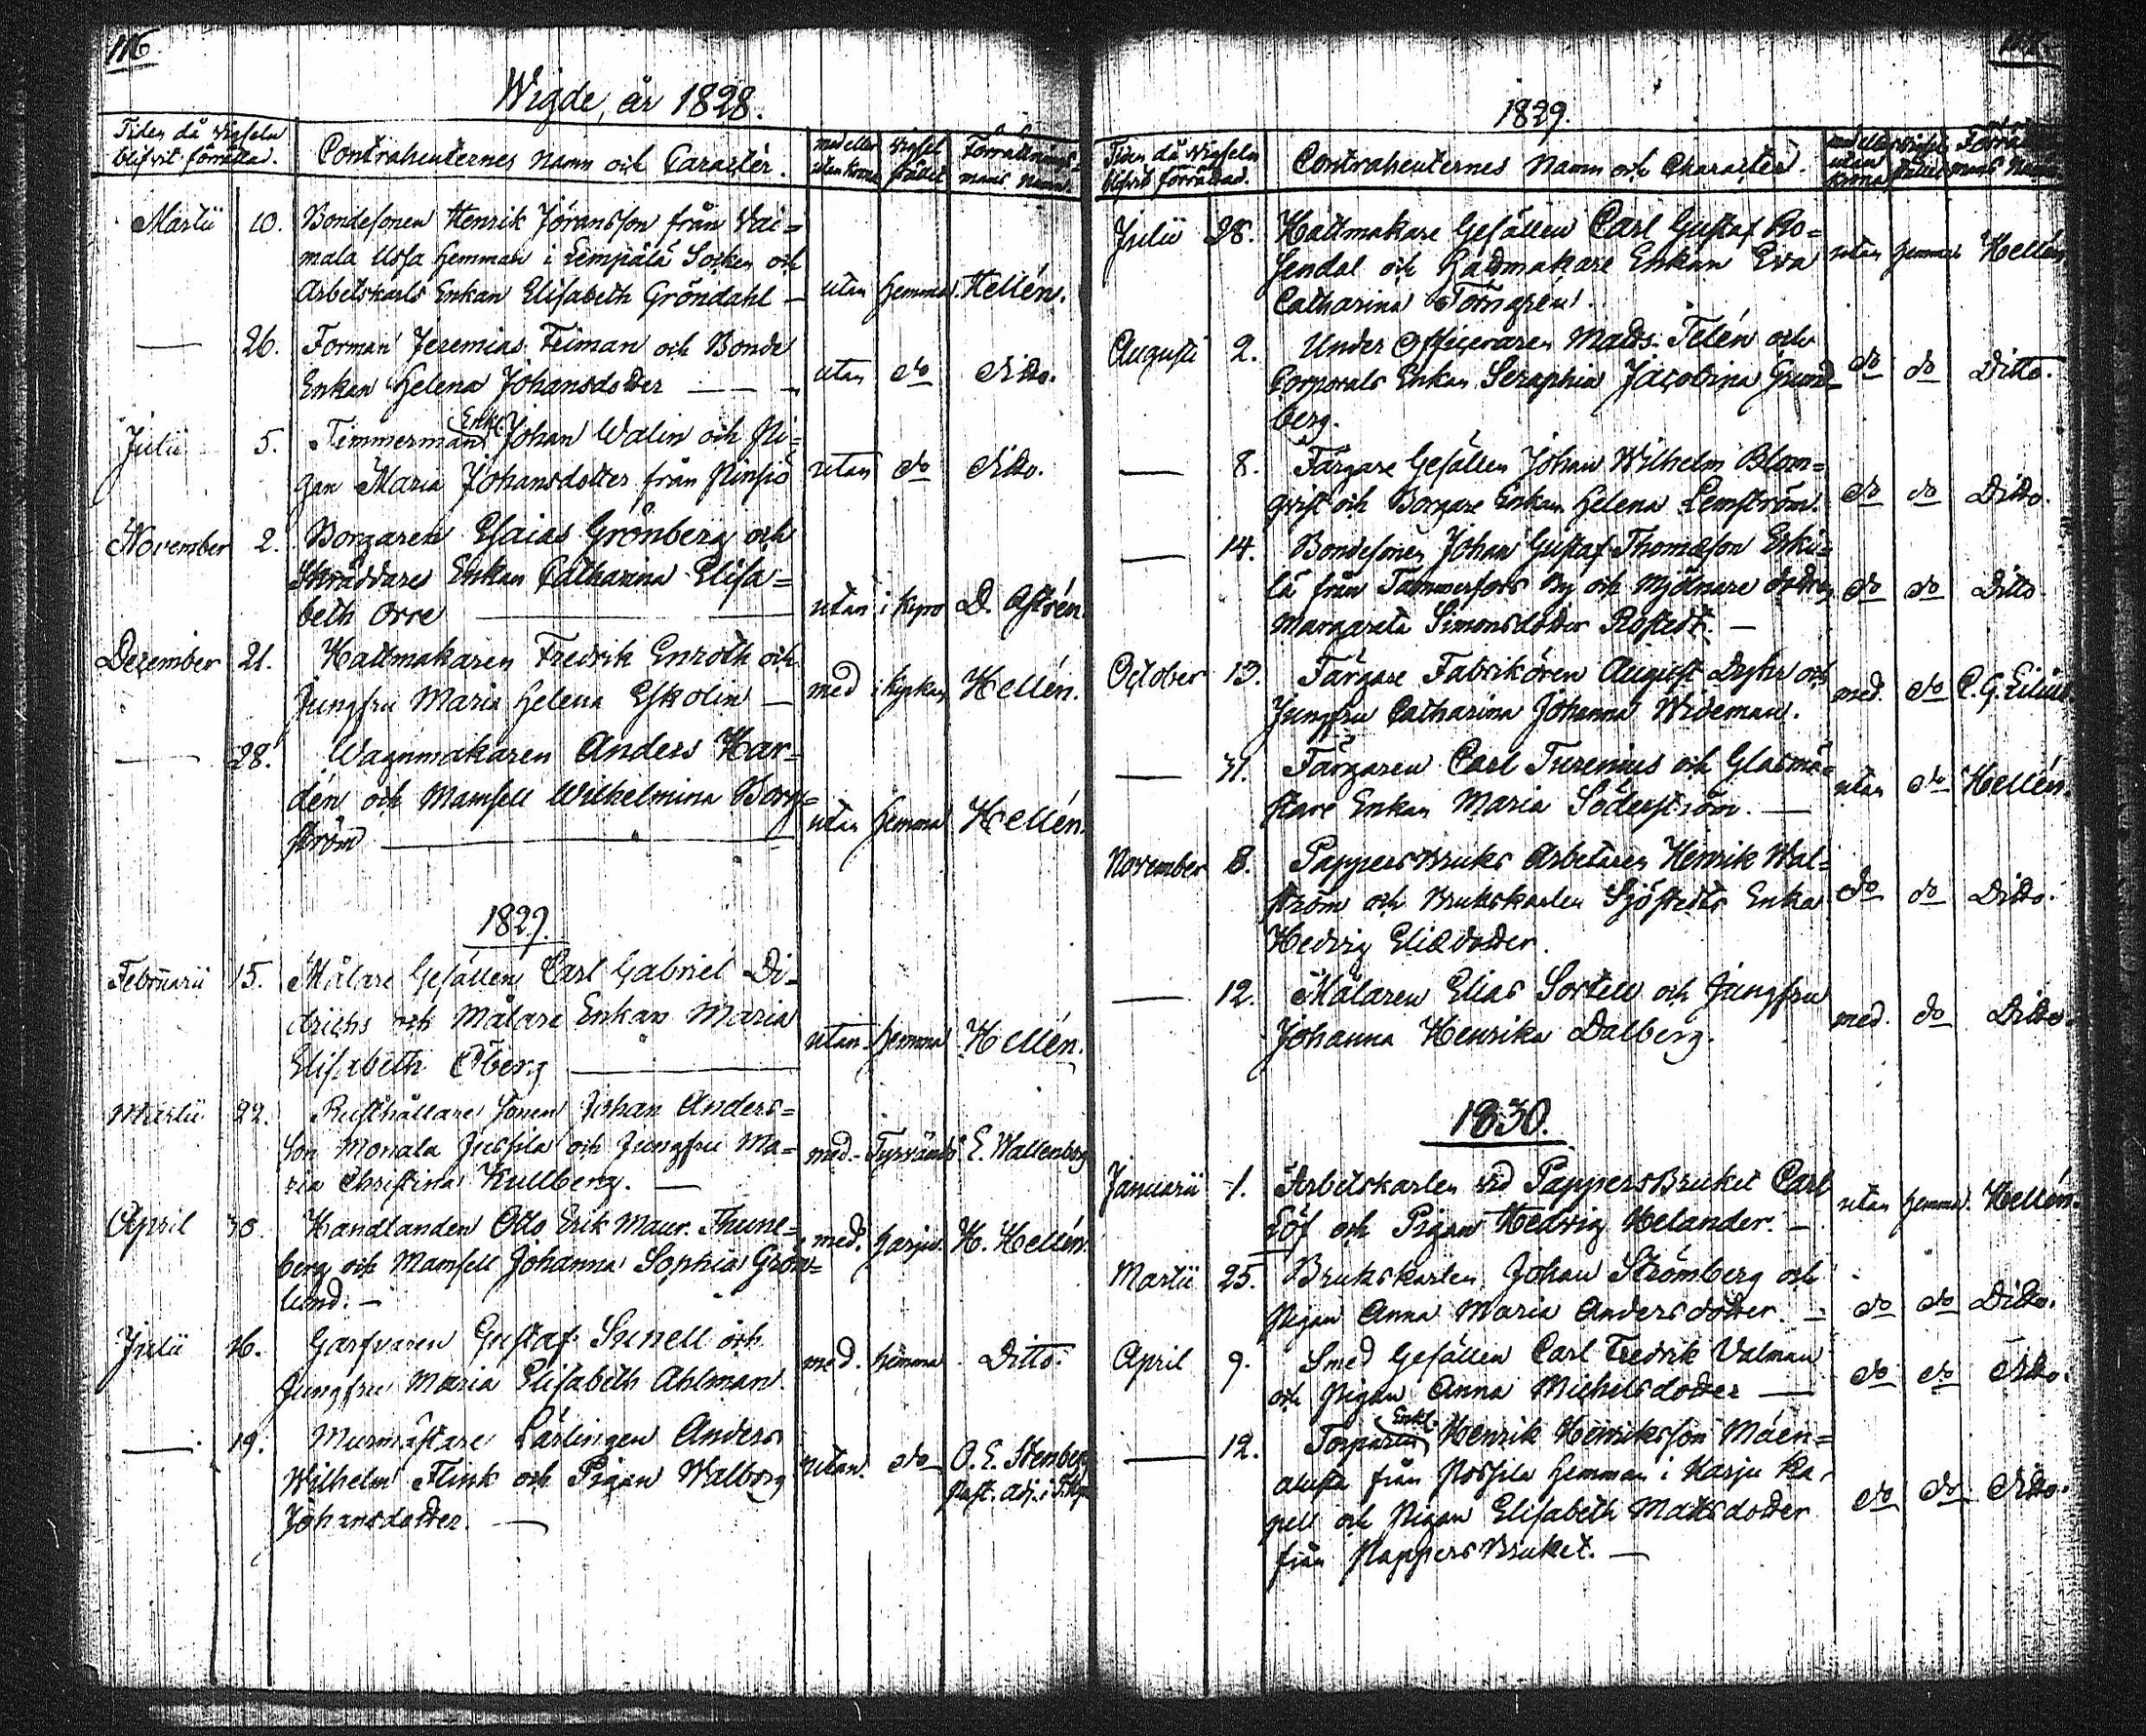 116.
Wigde, år 1828.
Tiden då wigseln
blifvit förrättad.
Contrahenternes Namn och Caractér.
med eller
utan krona
Wigsel
stället
Förrättnings-
mans Namn.
Martii 10. Bondesonen Henrik Jöransson från Wai=
mala Ussa hemman i Lempälä Socken och
Arbetskarls Enkan Elisabeth Gröndahl — utan hemma. Hellén.
— 26. Forman Jeremias Feiman och Bonde
Enkan Helena Johansdotter — — utan do Ditto.
Julii 5. Timmerman Enkl. Johan Walin och Pi=
gan Maria Johansdotter från Pinsiö utan do Ditto.
November 2. Borgaren Esaias Grönberg och
Skräddare Enkan Catharina Elisa=
beth Orre — utan i Kyro D. Astrén.
Dezember 21. Hattmakaren Fredrik Enroth och
Jungfru Maria Helena Eskolin — med i kyrkan Hellén.
— 28. Wagnmakaren Anders Har=
dén och Mamsell Wilhelmina Borg=
ström — utan hemma Hellén.
1829.
Februarii 15. Målare Gesällen Carl Gabriel Di=
drichs och Målare Enkan Maria
Elisabeth Öberg — utan hemma Hellén.
Martii 22. Rusthållare Sonen Johan Anders=
son Monala Jussila och Jungfru Ma=
ria Christina Kullberg. — med. Tyrvändö E. Wallenberg
April 30. Handlanden Otto Erik Maur. Thune=
berg och Mamsell Johanna Sophia Grön=
lund. — med. Harju. H. Hellén.
Julii 16. Garfvaren Gustaf Sunell och
Jungfru Maria Elisabeth Ahlman. med. hemma. Ditto.
— 19. Murmästare Lärlingen Anders
Wilhelm Flink och Pigan Walborg
Johansdotter. — utan. do O. E. Stenberg
past. adj. i
1829.
Tiden då Wigseln
blifvit förrättad.
Contrahenternes Namn och Character.
med eller
utan
krona
Wigsel
stället
mans Namn
Julii 28. Hattmakare Gesällen Carl Gustaf Ro=
sendal och Rådmakare Enkan Eva
Catharina Törngrén. utan hemma Hellén
Augusti 2. Under Officeraren Matts Telén och
Corporals Enkan Seraphia Jacobina Grund=
berg. do do Ditto.
— 8. Färgare Gesällen Johan Wilhelm Blom=
qvist och Borgare Enkan Helena Lemström. do do Ditto.
— 14. Bondesonen Johan Gustaf Thomæson Erki=
lä från Tammerfors By och Mjölnare dottren
Margareta Simonsdotter Rostedt. — do do Ditto
October 13. Färgare Fabrikören August Dyhr och
Jungfru Catharina Johanna Wideman. med. do C. G. Lilius
— 31. Färgaren Carl Turenius och Glasmä=
stare Enkan Maria Söderström. — utan do Hellén.
November 8. PappersBruks Arbetaren Henrik Wal=
ström och Brukskarlen Sjöstedts Enka
Hedvig Eliædotter. do do Ditto.
— 12. Målaren Elias Sortell och Jungfru
Johanna Henrika Dalberg. med. do Ditto.
1830.
Januarii 1. Arbetskarlen vid PappersBruket Carl
Löf och Pigan Hedvig Helander. — utan hemma. Hellén.
Martii 25. Brukskarlen Johan Strömberg och
Pigan Anna Maria Andersdotter. — do do Ditto.
April 9. Smed Gesällen Carl Fredrik Valman
och Pigan Anna Michelsdotter — do do Ditto.
— 12. Torparen Enkl. Henrik Henriksson Mäen=
alusta från Possila hemman i Harju Ka=
pell och Pigan Elisabeth Mattsdotter
från PappersBruket. — do do Ditto.